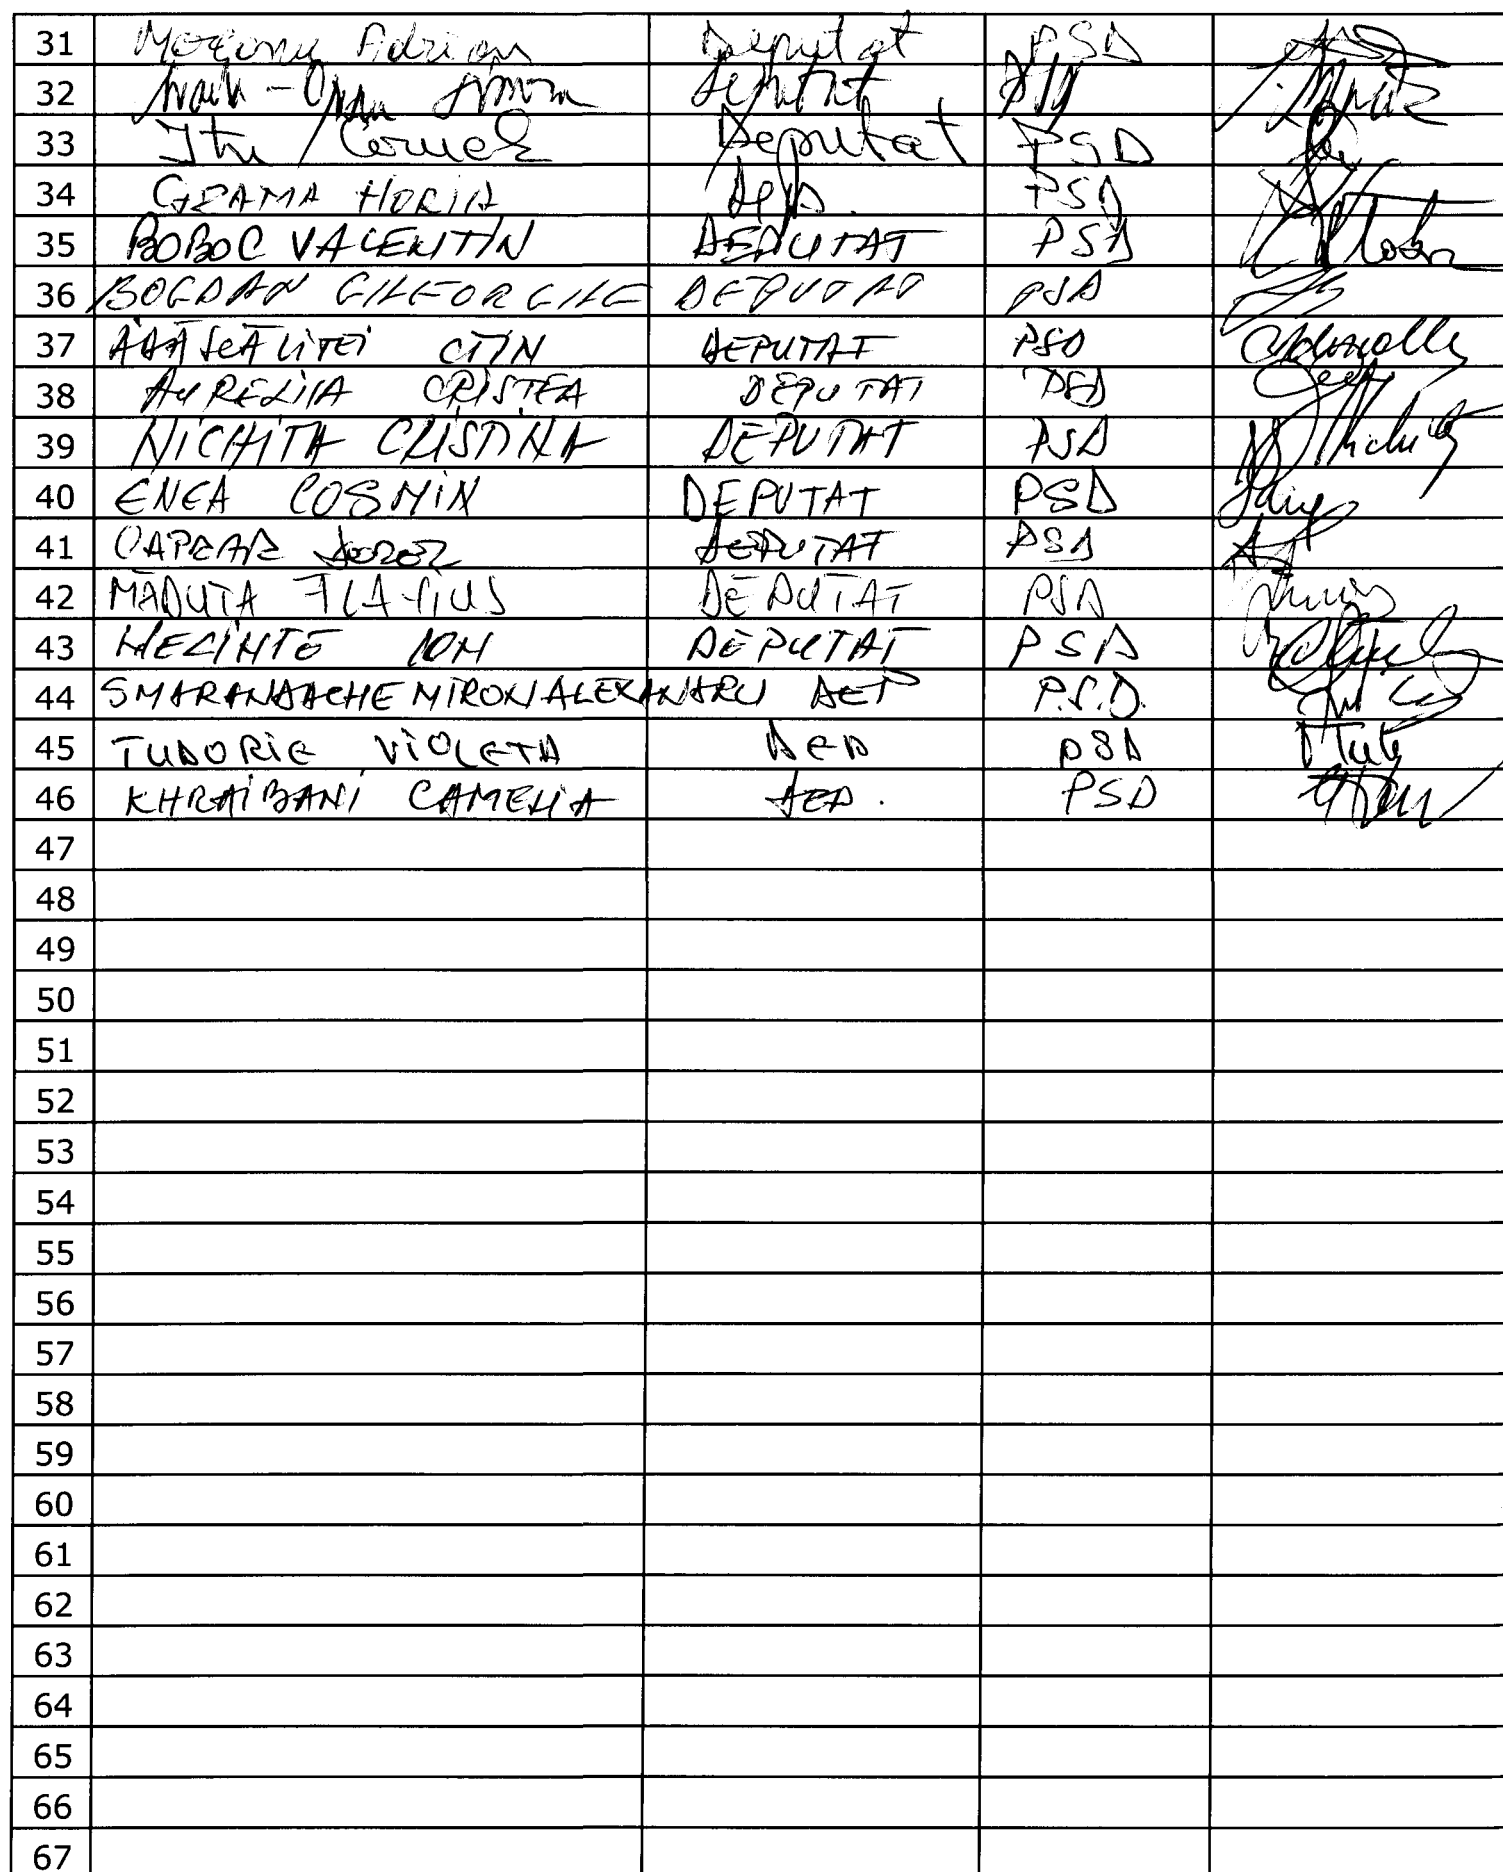 31 Mocanu Adrian Deputat PSD
32 Deputat PSD
33 Itu Cornel Deputat PSD
34 GRAMA HORIA Dep. PSD
35 BOBOC VALENTIN DEPUTAT PSD
36 BOGDAN GHEORGHE DEPUTAT PSD
37 ADĂSCĂLIȚEI CTIN DEPUTAT PSD
38 AURELIA CRISTEA DEPUTAT PSD
39 NICHITA CRISTINA DEPUTAT PSD
40 ENEA COSMIN DEPUTAT PSD
41 CAPRAR DOREL DEPUTAT PSD
42 MĂDUȚA FLAVIUS DEPUTAT PSD
43 MELINTE ION DEPUTAT PSD
44 SMARANDACHE MIRON ALEXANDRU DEP P.S.D.
45 TUDORIE VIOLETA DEP PSD
46 KHRAIBANI CAMELIA DEP. PSD
47
48
49
50
51
52
53
54
55
56
57
58
59
60
61
62
63
64
65
66
67